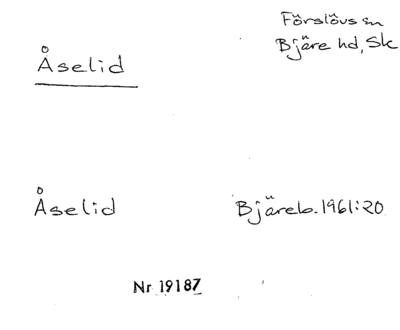 Förslövs sn
Bjäre hd, Sk
Åselid
Åselid Bjäreb. 1961:20
Nr 19187